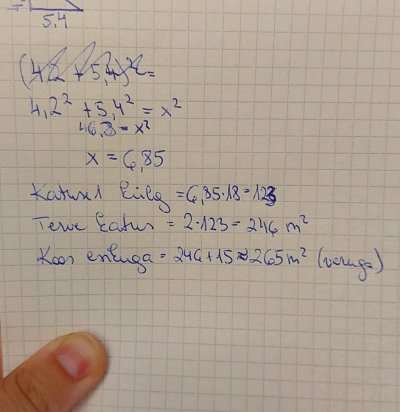 5.4
(4,2 + 5,4)² =
4,2² + 5,4² = x²
46,8 = x²
x = 6,85
Katuse 1 külg = 6,85·18 = 123
Terve katus = 2·123 = 246 m²
Koos = 246 + 15 ≈ 265 m² (varuga)